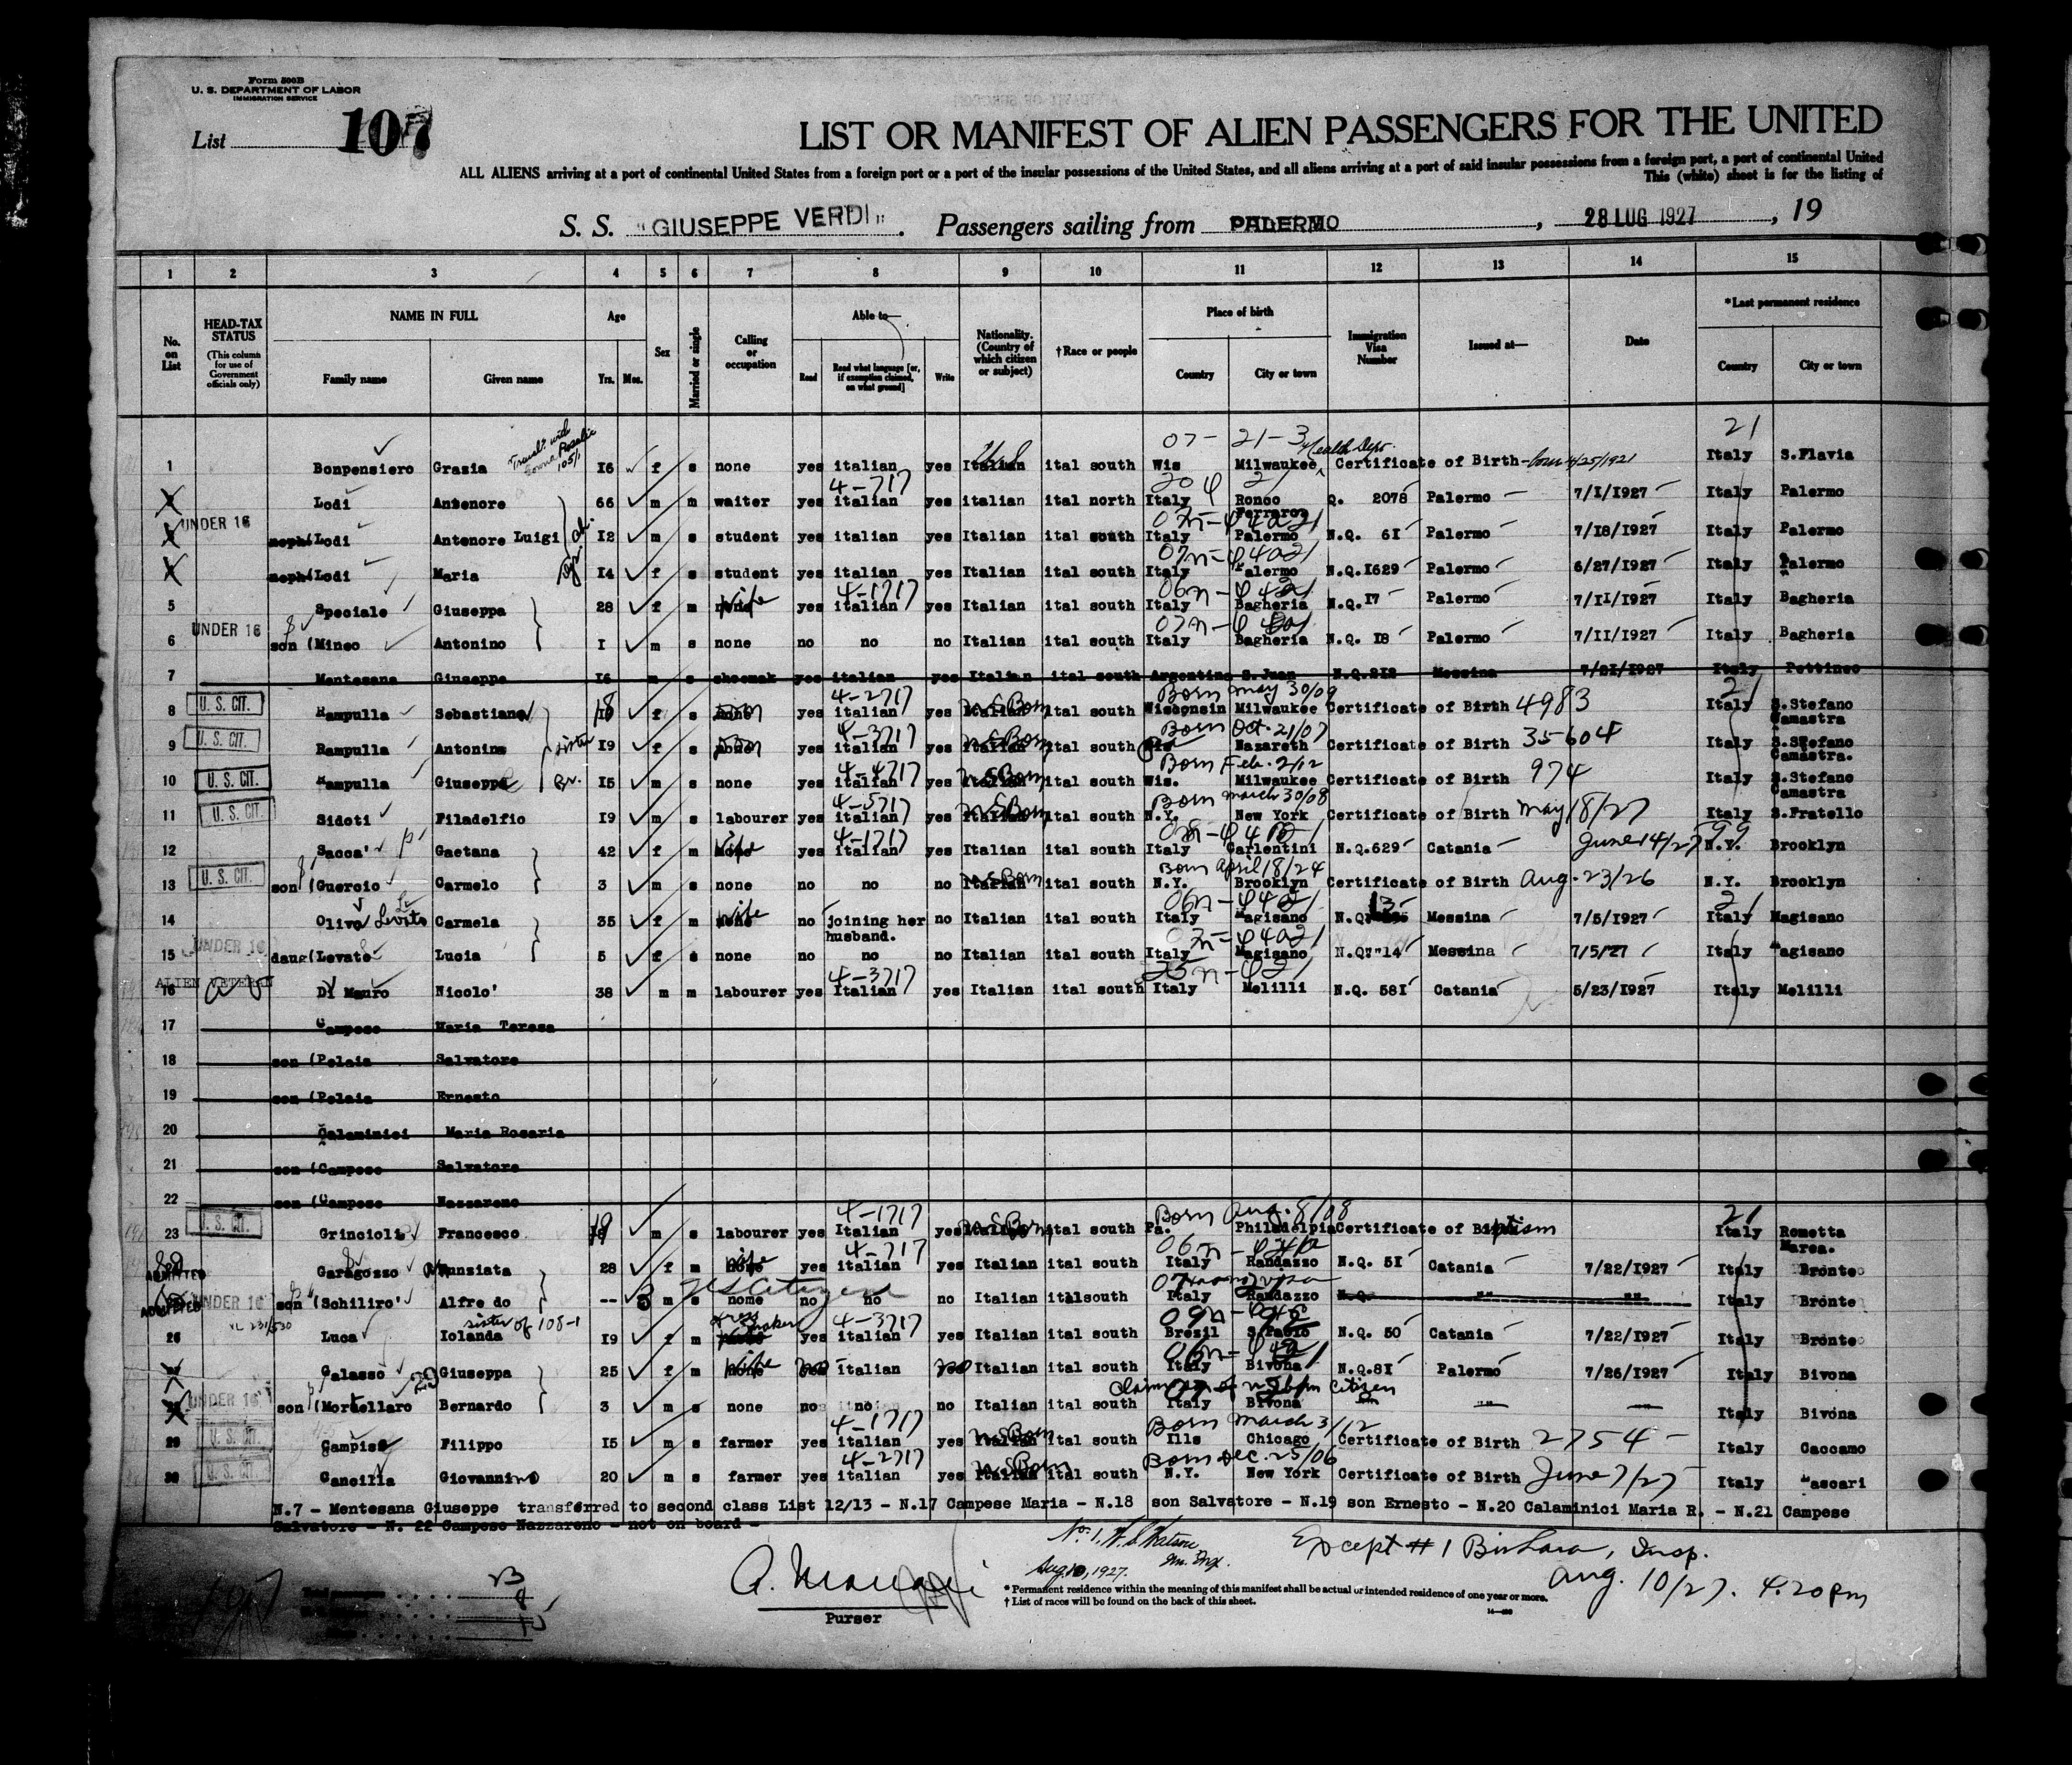 Form 500B
U. S. DEPARTMENT OF LABOR
IMMIGRATION SERVICE
List 107
LIST OR MANIFEST OF ALIEN PASSENGERS FOR THE UNITED
ALL ALIENS arriving at a port of continental United States from a foreign port or a port of the insular possessions of the United States, and all aliens arriving at a port of said insular possessions from a foreign port, a port of continental United
This (white) sheet is for the listing of
S. S. "GIUSEPPE VERDI". Passengers sailing from PALERMO, 28 LUG 1927, 19
1 2 3 4 5 6 7 8 9 10 11 12 13 14 15
No. on List
HEAD-TAX STATUS (This column for use of Government officials only)
NAME IN FULL
Family name Given name
Age
Yrs. Mos.
Sex
Married or single
Calling or occupation
Able to—
Read Read what language [or, if exemption claimed, on what ground] Write
Nationality. (Country of which citizen or subject)
†Race or people
Place of birth
Country City or town
Immigration Visa Number
Issued at—
Date
*Last permanent residence
Country City or town
07- 21-3 Health Dept. 21
1 Bonpensiero Grasia 16 f s none yes italian yes Italian ital south Wis Milwaukee Certificate of Birth Italy S.Flavia
4-717
Lodi Antenore 66 m m waiter yes italian yes italian ital north Italy Ronco Ferraro Q. 2078 Palermo 7/1/1927 Italy Palermo
UNDER 16
neph(Lodi Antenore Luigi 12 m s student yes italian yes Italian ital south Italy Palermo N.Q. 61 Palermo 7/18/1927 Italy Palermo
neph(Lodi Maria 14 f s student yes italian yes Italian ital south Italy Palermo N.Q.1629 Palermo 6/27/1927 Italy Palermo
4-1717
5 Speciale Giuseppa 28 f m wife yes italian yes Italian ital south Italy Bagheria N.Q.17 Palermo 7/11/1927 Italy Bagheria
UNDER 16
6 son (Mineo Antonino 1 m s none no no no Italian ital south Italy Bagheria N.Q. 18 Palermo 7/11/1927 Italy Bagheria
7 Mentesana Giuseppe 16 m s shoemak yes italian yes Italian ital south Argentina S.Juan N.Q.212 Messina 7/21/1927 Italy Pettineo
4-2717 Born may 30/09 21
8 U. S. CIT. Rampulla Sebastiana 18 f s yes italian yes U S Born ital south Wisconsin Milwaukee Certificate of Birth 4983 Italy S.Stefano Camastra
4-3717 Born Oct. 21/07
9 U. S. CIT. Rampulla Antonina sister 19 f s yes italian yes U S Born ital south Nazareth Certificate of Birth 35604 Italy S.Stefano Camastra.
4-4717 Born Feb. 2/12
10 U. S. CIT. Rampulla Giuseppe Br. 15 m s none yes italian yes U S Born ital south Wis. Milwaukee Certificate of Birth 974 Italy S.Stefano Camastra
4-5717 Born march 30/08
11 U. S. CIT. Sidoti Filadelfio 19 m s labourer yes italian yes U S Born ital south N.Y. New York Certificate of Birth May 18/27 Italy S.Fratello
4-1717 99
12 Sacca' Gaetana 42 f m wife yes italian yes Italian ital south Italy Carlentini N.Q.629 Catania June 14/27 N.Y. Brooklyn
Born April 18/24
13 U. S. CIT. son (Guercio Carmelo 3 m s none no no no U S Born ital south N.Y. Brooklyn Certificate of Birth Aug. 23/26 N.Y. Brooklyn
21
14 Oliva Carmela 35 f m wife no joining her husband. no Italian ital south Italy Magisano N.Q. 13 Messina 7/5/1927 Italy Magisano
UNDER 16
15 daug(Levate Lucia 5 f s none no no no Italian ital south Italy Magisano N.Q."14 Messina 7/5/27 Italy Magisano
ALIEN VETERAN 4-3717
16 Di Mauro Nicolo' 38 m m labourer yes Italian yes Italian ital south Italy Melilli N.Q. 581 Catania 5/23/1927 Italy Melilli
17 Campese Maria Teresa
18 son (Pelaia Salvatore
19 son (Pelaia Ernesto
20 Calaminici Maria Rosaria
21 son (Campese Salvatore
22 son (Campese Nazzareno
4-1717 Born Aug. 8/08 21
23 U. S. CIT. Grincioli Francesco m s labourer yes Italian yes U S Born ital south Pa. Philadelpia Certificate of Baptism Italy Rometta Marea.
ADMITTED 4-717
Garagozzo Nunziata 28 f m wife yes italian yes Italian ital south Italy Randazzo N.Q. 51 Catania 7/22/1927 Italy Bronte
ADMITTED UNDER 16 U S Citizen
son (Schiliro' Alfredo -- 3 m s nome no no no Italian ital south Italy Randazzo N.Q. " " Italy Bronte
sister of 108-1 dress maker 4-3717
26 Luca Iolanda 19 f m yes italian yes Italian ital south Brezil S.Paolo N.Q. 50 Catania 7/22/1927 Italy Bronte
Galasso Giuseppa 25 f m wife italian Italian ital south Italy Bivona N.Q.81 Palermo 7/26/1927 Italy Bivona
UNDER 16 citizen
son (Mortellaro Bernardo 3 m s none no no no Italian ital south Italy Bivona Italy Bivona
4-1717 Born March 3/12
29 U. S. CIT. Campisi Filippo 15 m s farmer yes italian yes U S Born ital south Ills Chicago Certificate of Birth 2754 Italy Caccamo
4-2717 Born Dec. 25/06
30 U. S. CIT. Cancilla Giovannino 20 m s farmer yes italian yes U S Born ital south N.Y. New York Certificate of Birth June 7/27 Italy Mascari
N.7 - Mentesana Giuseppe transferred to second class List 12/13 - N.17 Campese Maria - N.18 son Salvatore - N.19 son Ernesto - N.20 Calaminici Maria R. - N.21 Campese
Salvatore - N. 22 Campese Nazzareno - not on board -
No. 1, W. S. Watson Im. Insp. Aug 10, 1927.
Except # 1 Insp.
Aug. 10/27. 4.20 pm
Purser
* Permanent residence within the meaning of this manifest shall be actual or intended residence of one year or more.
† List of races will be found on the back of this sheet.